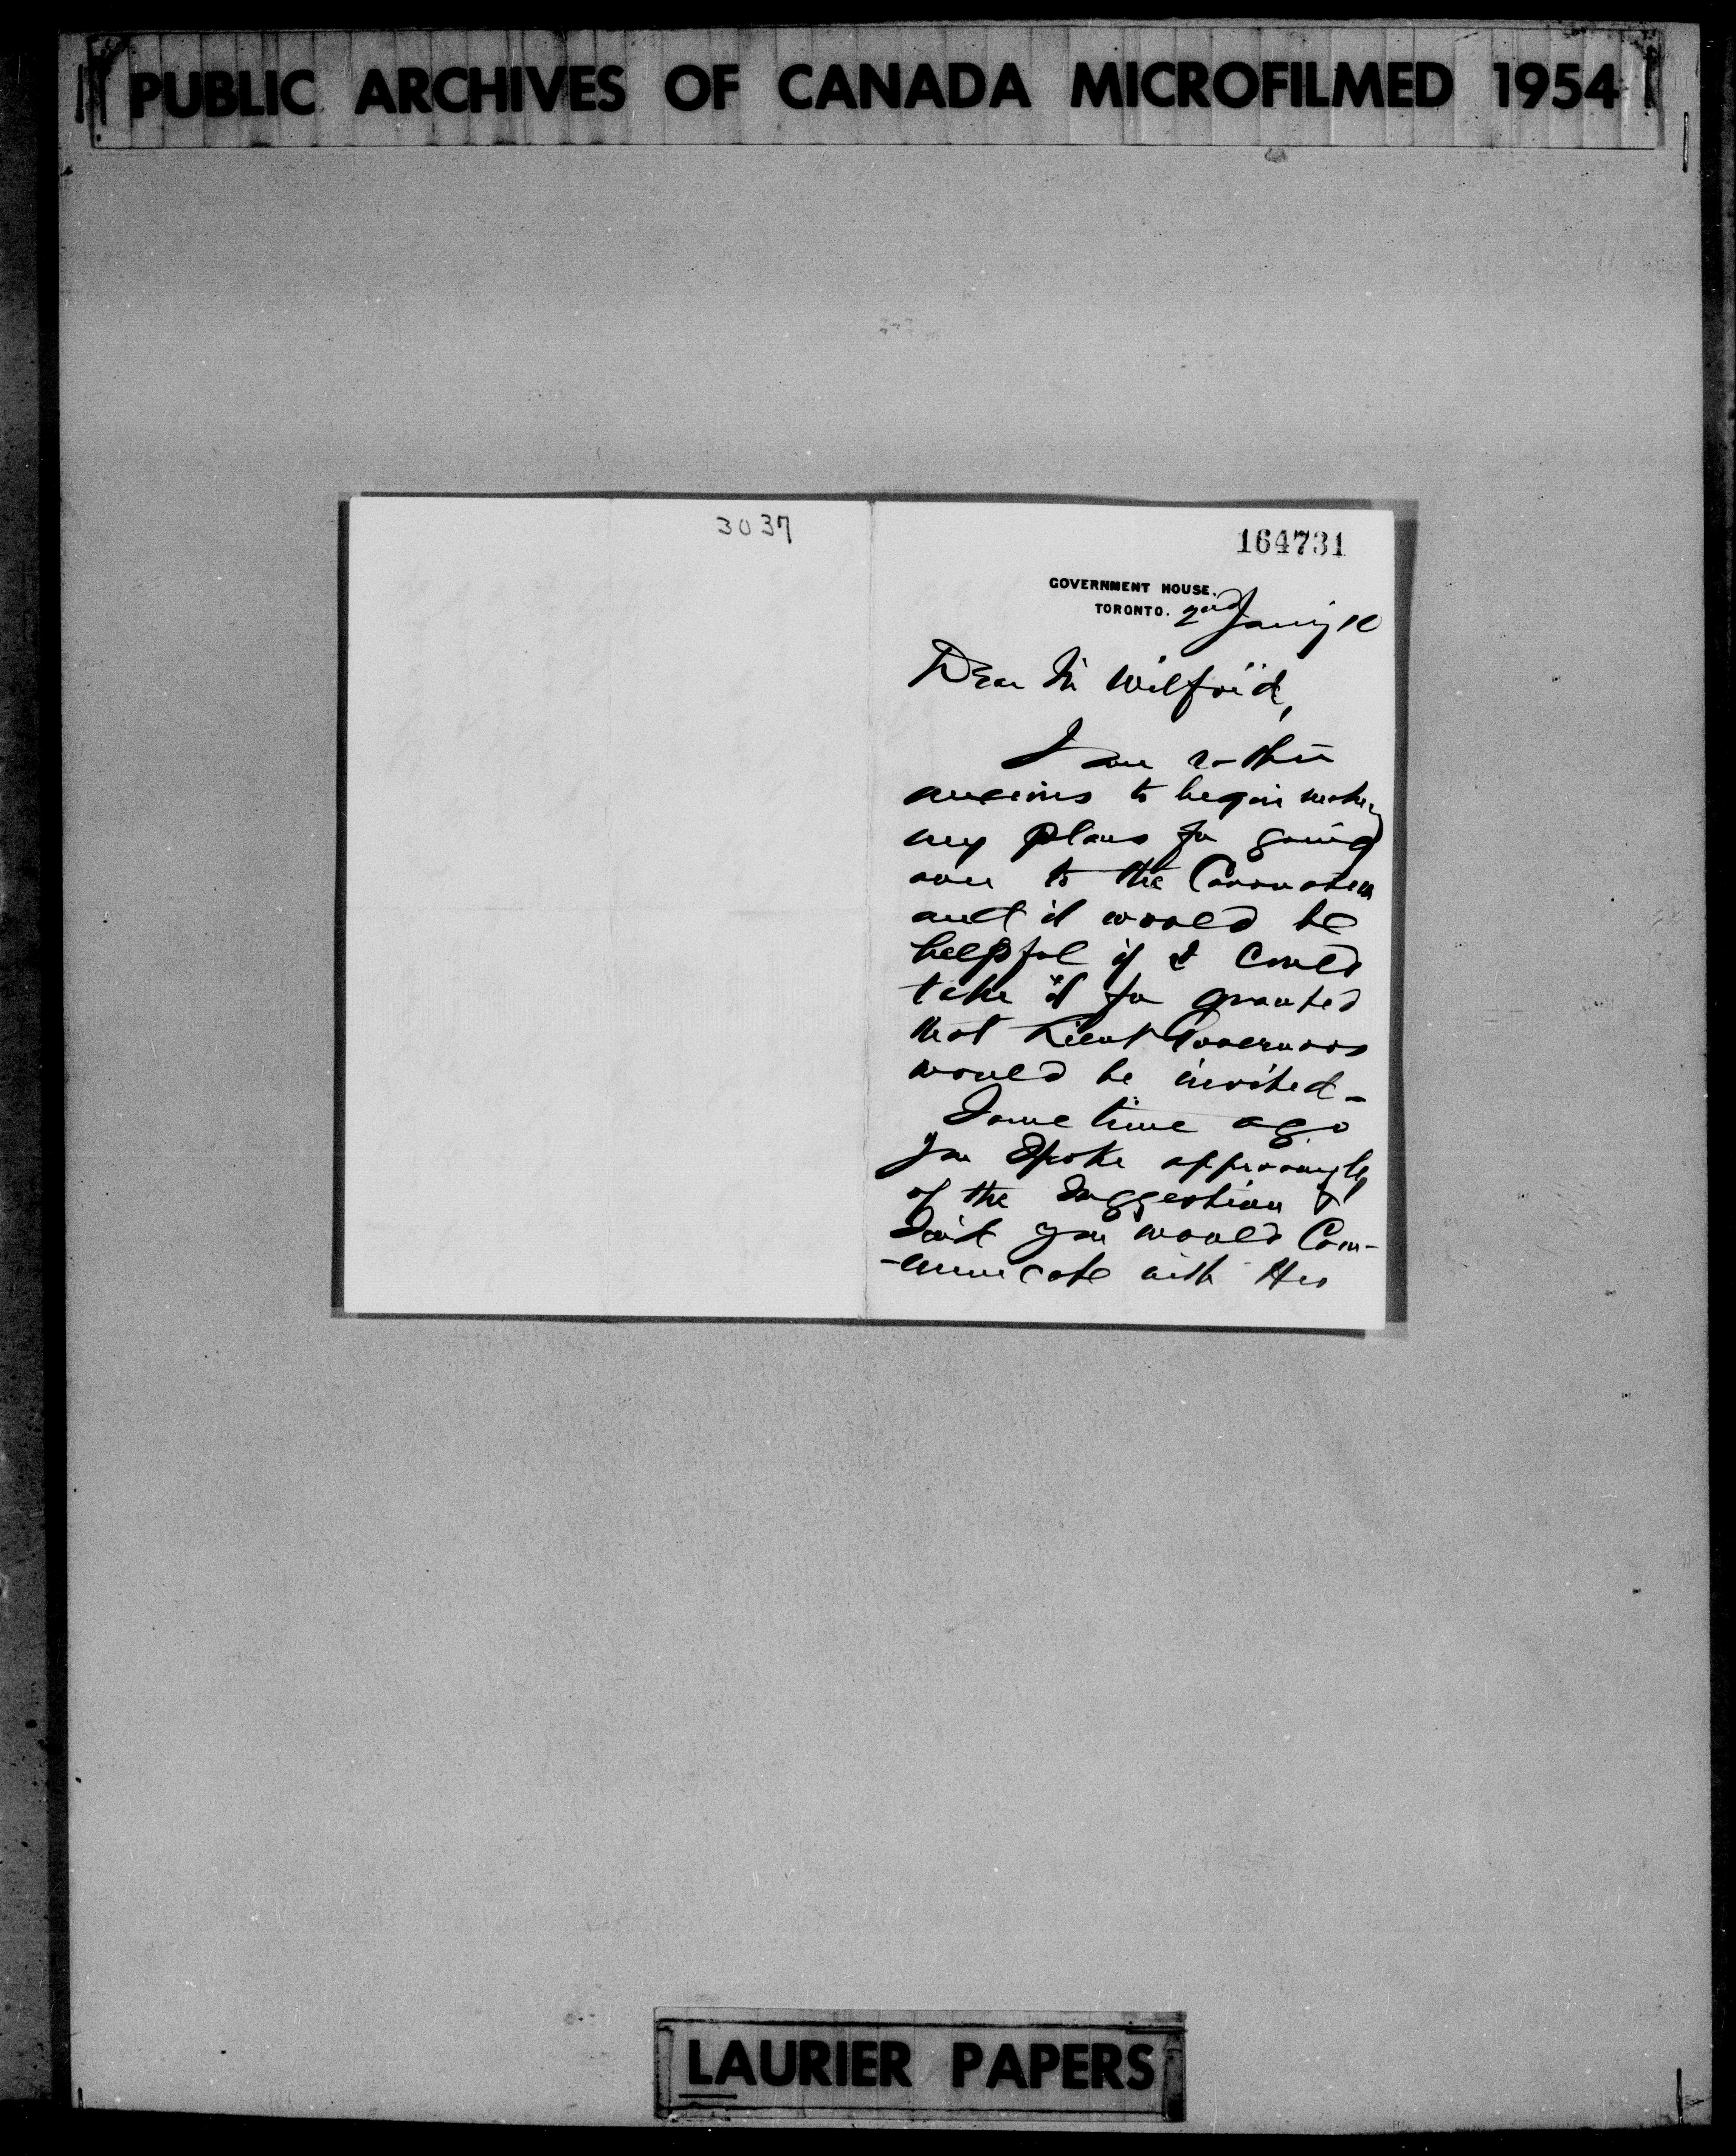 PUBLIC ARCHIVES OF CANADA MICROFILMED 1954
3037
164731
GOVERNMENT HOUSE.
TORONTO. 2nd Jany 10
Dear Sir Wilfrid,
I am rather
anxious to begin making
my plans for going
over to the Coronation
and it would be
helpful if I could
take it for granted
that Lieut Governors
would be invited -
Some time ago
you spoke approvingly
of the suggestion &
said you would Com-
-municate with His
LAURIER PAPERS